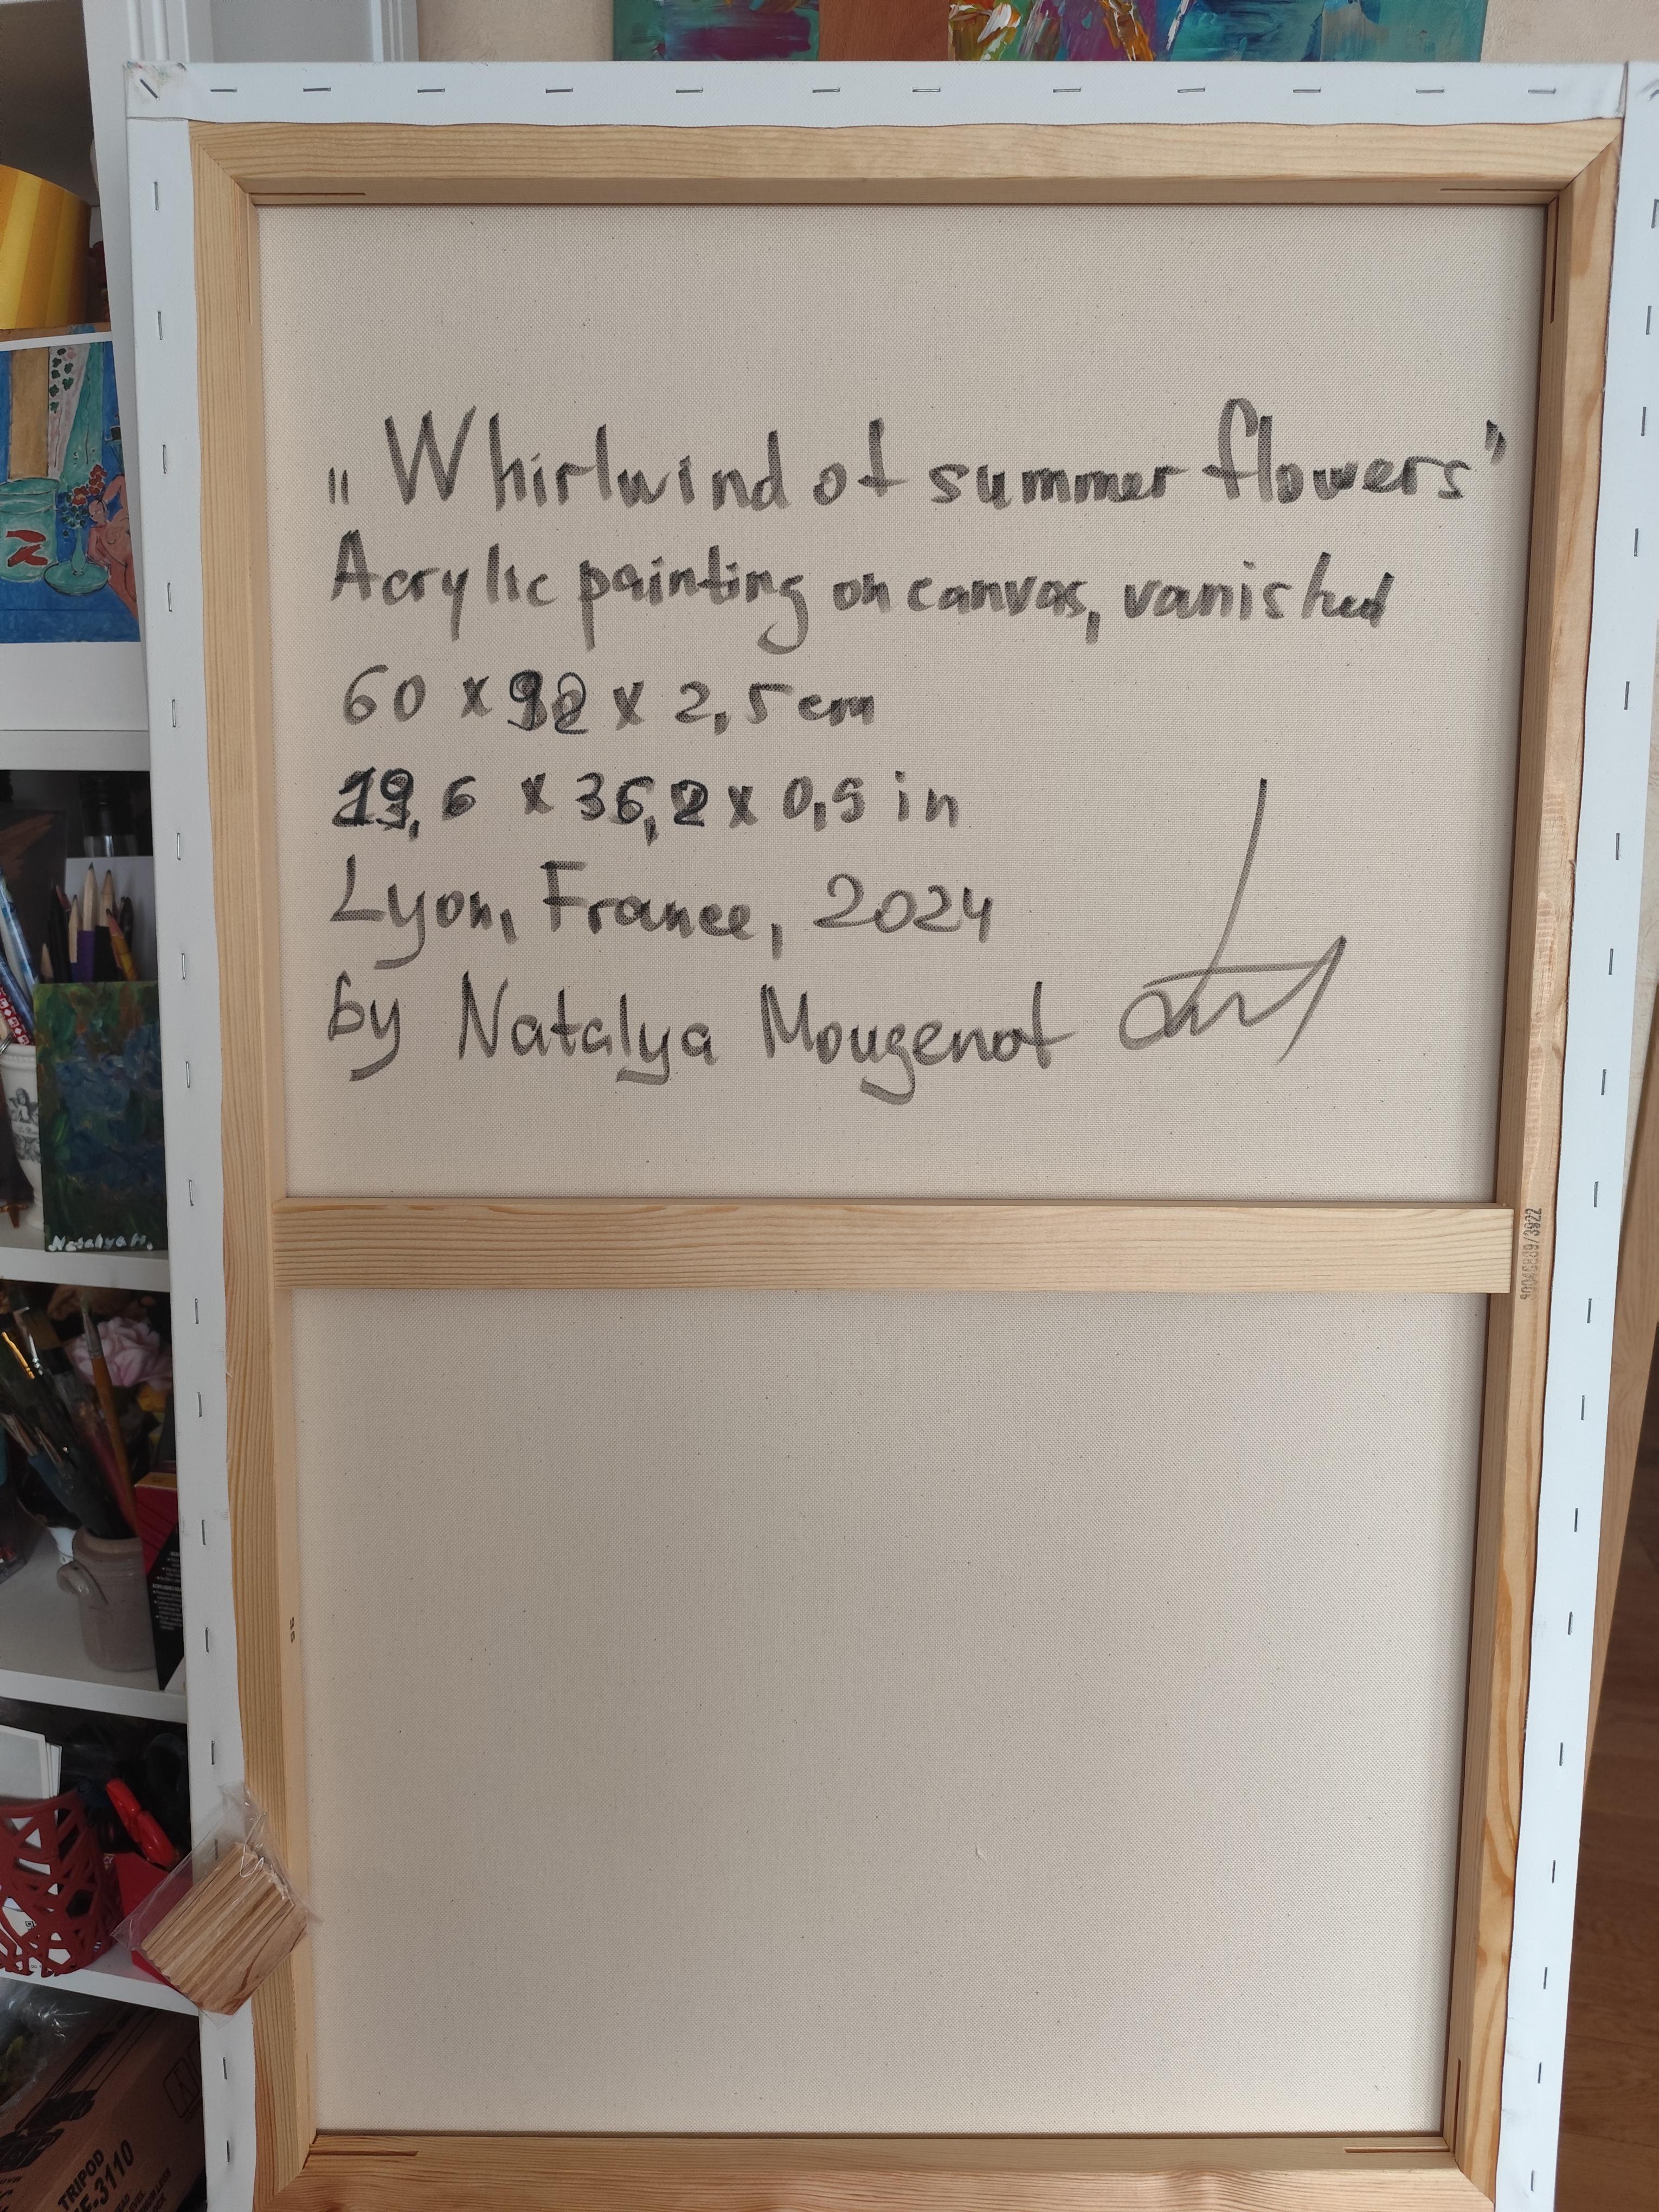 „Whirlwind of summer flowers”
Acrylic painting on canvas, vanished
60 x 92 x 2,5 cm
19,6 x 36,2 x 0,9 in
Lyon, France, 2024
by Natalya Mougenot
40046889/3922
Natalya M.
TRIPOD